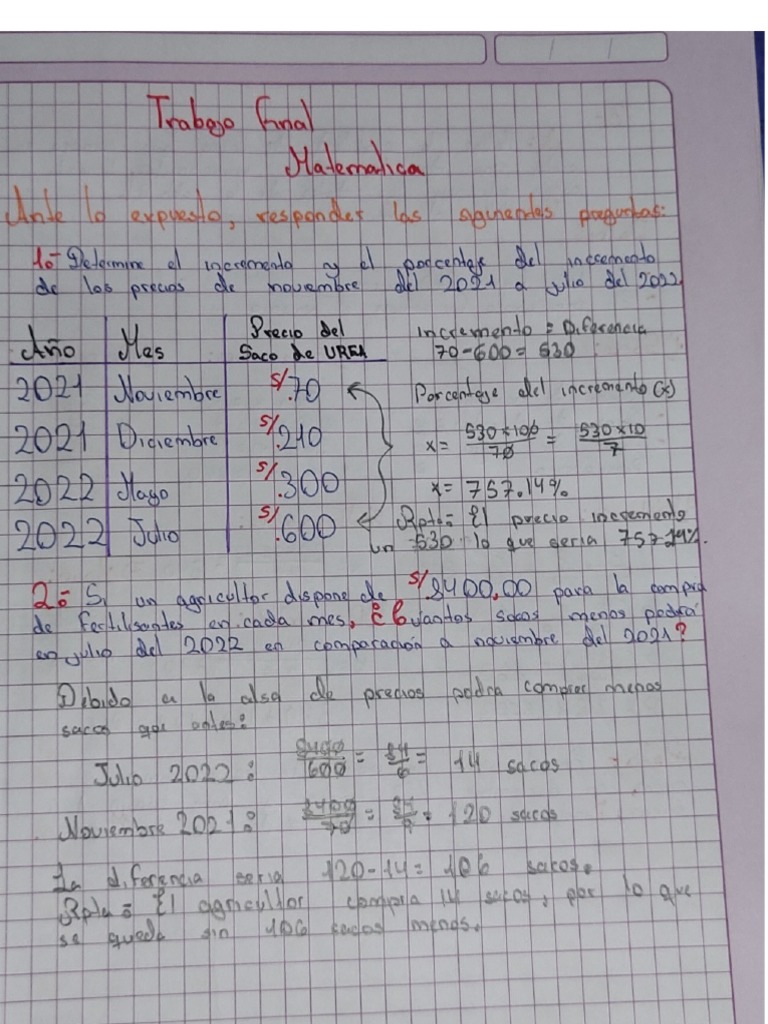 Trabajo final
Matematica
Ante lo expuesto, responder las siguientes preguntas:
1º Determine el incremento y el porcentaje del incremento
de los precios de noviembre del 2021 a julio del 2022
Año Mes Precio del Saco de UREA
2021 Noviembre S/.70
2021 Diciembre S/.210
2022 Mayo S/.300
2022 Julio S/.600
Incremento = Diferencia
70-600= 530
Porcentage del incremento (x)
x= 530×100/70 = 530×10/7
x= 757.14%
Rpta= El precio incremento
un 530 lo que seria 757.14%.
2º Si un agricultor dispone de S/8400,00 para la compra
de fertilisantes en cada mes, ¿Cuantos sacos menos podra
en julio del 2022 en comparacion a noviembre del 2021?
Debido a la alsa de precios podra comprar menos
sacos que antes:
Julio 2022: 8400/600 = 84/6 = 14 sacos
Noviembre 2021: 8400/70 = 84/7 = 120 sacos
La diferencia seria 120-14= 106 sacos.
Rpta= El agricultor compra 14 sacos, por lo que
se queda sin 106 sacos menos.